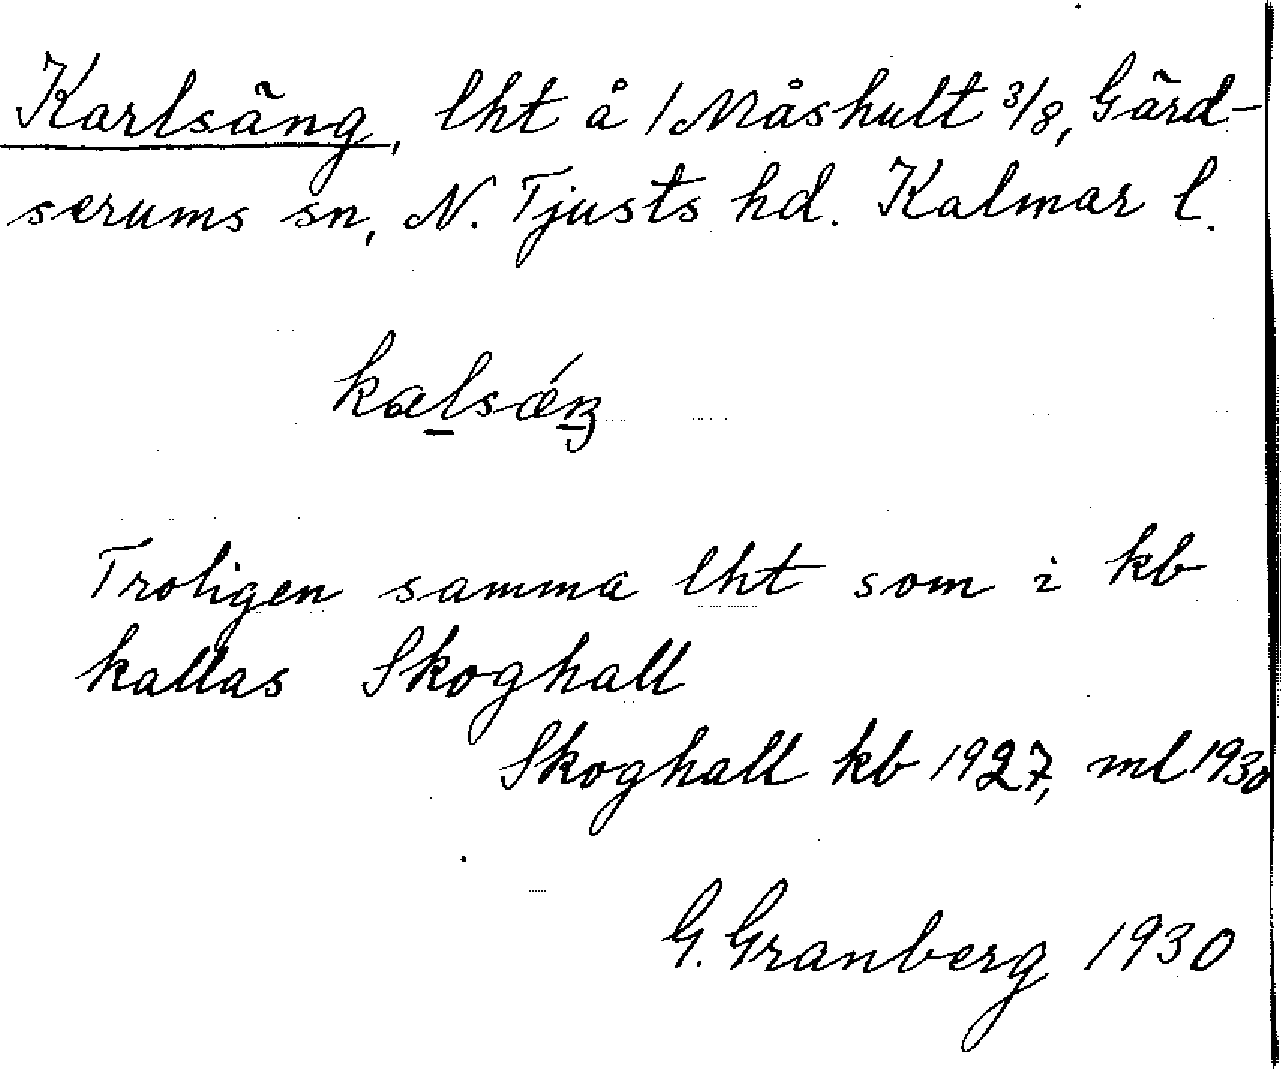 Karlsäng, lht å 1 Måshult 3/8, Gärd-
serums sn, N. Tjusts hd. Kalmar l.
Troligen samma lht som i kb
kallas Skoghall
Skoghall kb 1927, ml 1930
G. Granberg 1930